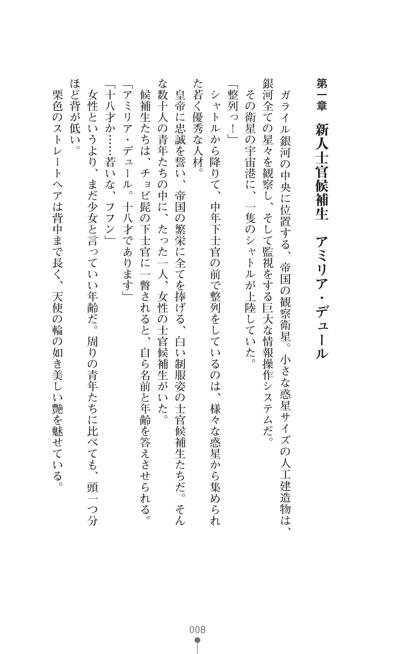 第一章　新人士官候補生　アミリア・デュール
　ガライル銀河の中央に位置する、帝国の観察衛星。小さな惑星サイズの人工建造物は、
銀河全ての星々を観察し、そして監視をする巨大な情報操作システムだ。
　その衛星の宇宙港に、一隻のシャトルが上陸していた。
「整列っ！」
　シャトルから降りて、中年下士官の前で整列をしているのは、様々な惑星から集められ
た若く優秀な人材。
　皇帝に忠誠を誓い、帝国の繁栄に全てを捧げる、白い制服姿の士官候補生たちだ。そん
な数十人の青年たちの中に、たった一人、女性の士官候補生がいた。
　候補生たちは、チョビ髭の下士官に一瞥されると、自ら名前と年齢を答えさせられる。
「アミリア・デュール。十八才であります」
「十八才か……若いな、フフン」
　女性というより、まだ少女と言っていい年齢だ。周りの青年たちに比べても、頭一つ分
ほど背が低い。
　栗色のストレートヘアは背中まで長く、天使の輪の如き美しい艶を魅せている。
008